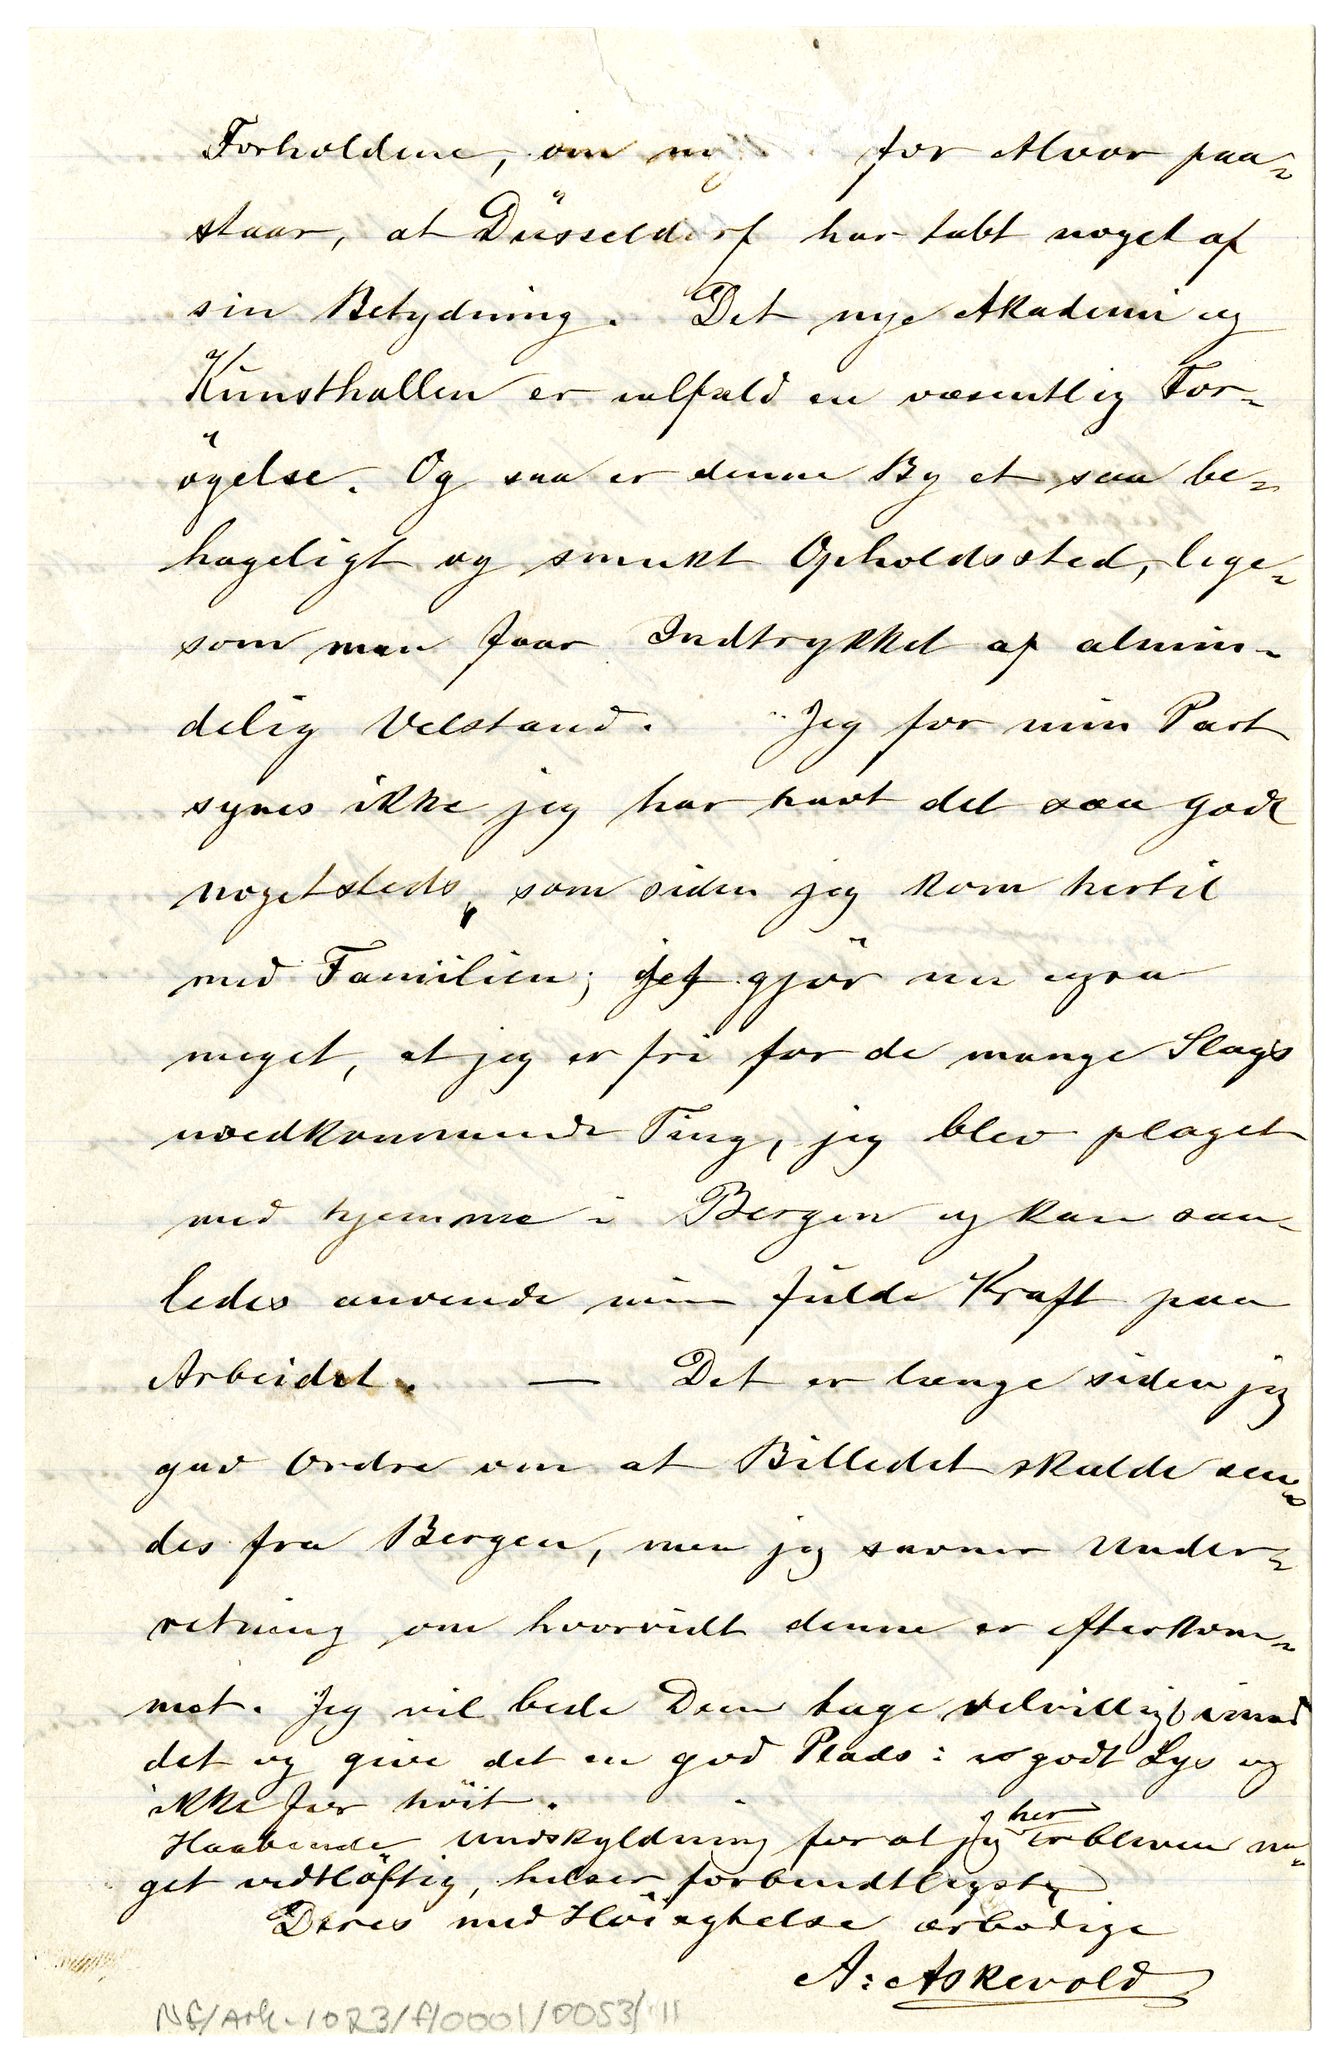 Forholdene, om for Alvor paa-
staar, at Düsseldorf har tabt noget af
sin Betydning. Det nye Akademi og
Kunsthallen er ialfald en væsentlig For-
øgelse. Og saa er denne By et saa be-
hageligt og smukt Opholdssted, lige-
som man faar Indtrykket af almin-
delig Velstand. Jeg for min Part
synes ikke jeg har havt det saa godt
nogetsteds, som siden jeg kom hertil
med Familien; det gjør nu ogsaa
meget, at jeg er fri for de mange Slags
uvedkommende Ting, jeg blev plaget
med hjemme i Bergen og kan saa-
ledes anvende min fulde Kraft paa
Arbeidet. — Det er længe siden jeg
gav Ordre om at Billedet skulde sen-
des fra Bergen, men jeg savner Under-
retning om hvorvidt denne er efterkom-
met. Jeg vil bede Dem tage velvilligt imod
det og give det en god Plads: godt Lys og
ikke for høit.
Haabende Undskyldning for at jeg her er bleven no-
get vidtløftig, hilser forbindtligst
Deres med Høiagtelse ærbødige
A: Askevold
NB/Ark-1023/f/0001/0053/11